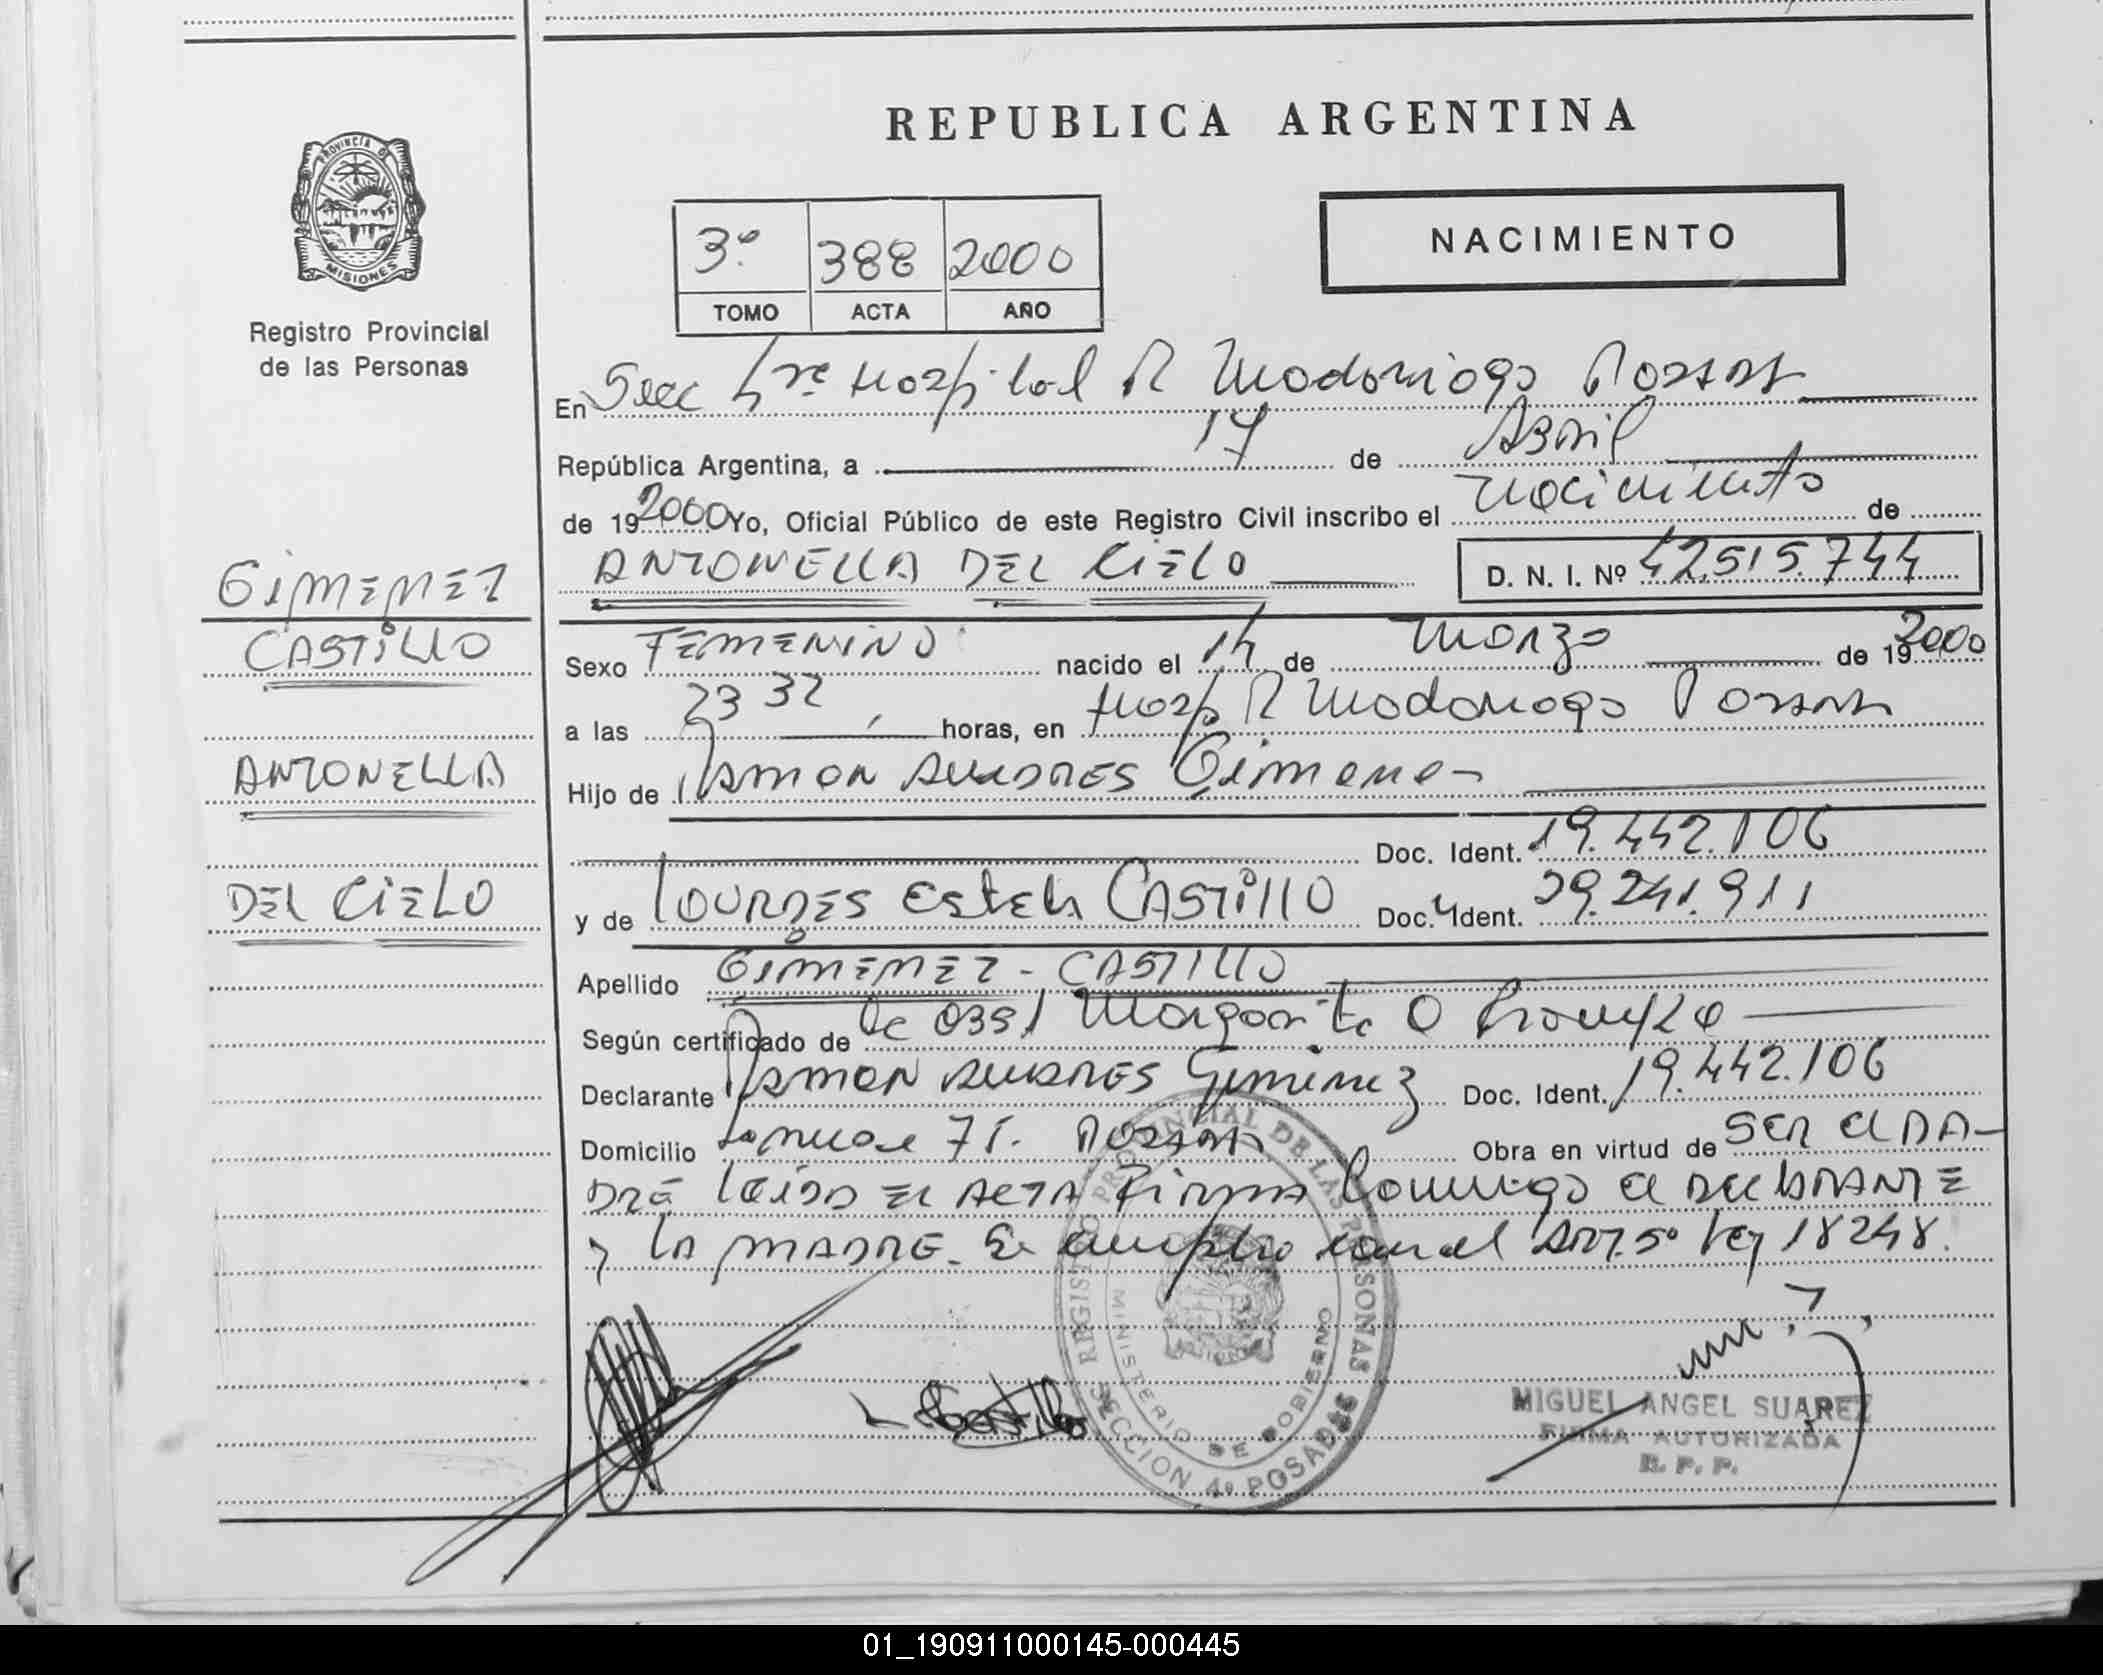 REPUBLICA ARGENTINA
PROVINCIA DE
MISIONES
Registro Provincial
de las Personas
3º 388 2000
TOMO ACTA AÑO
NACIMIENTO
En Secc 4ta Hospital R Madariaga Posadas
República Argentina, a 17 de Abril
de 192000 Yo, Oficial Público de este Registro Civil inscribo el nacimiento de
ANTONELLA DEL CIELO D. N. I. Nº 42.515.744
GIMENEZ
CASTILLO
ANTONELLA
DEL CIELO
Sexo FEMENINO nacido el 14 de Marzo de 192000
a las 23 32 horas, en Hosp R Madariaga Posadas
Hijo de RAMON ANDRES Gimenez
Doc. Ident. 19.442.106
y de LOURDES EStela CASTILLO Doc. Ident. 29.241.911
Apellido GIMENEZ - CASTILLO
Según certificado de la Obst Margarita O
Declarante RAMON ANDRES Gimenez Doc. Ident. 19.442.106
Domicilio 71. Posadas Obra en virtud de SER El PA-
DRE leida EL ACTA FIRMA Conmigo el DEClARANTE
y LA MADRE. Se cumplio con el ART. 5º Ley 18248.
Castillo
REGISTRO PROVINCIAL DE LAS PERSONAS
MINISTERIO DE GOBIERNO
SECCION 4º POSADAS
MIGUEL ANGEL SUAREZ
FIRMA AUTORIZADA
R. P. P.
01_190911000145-000445